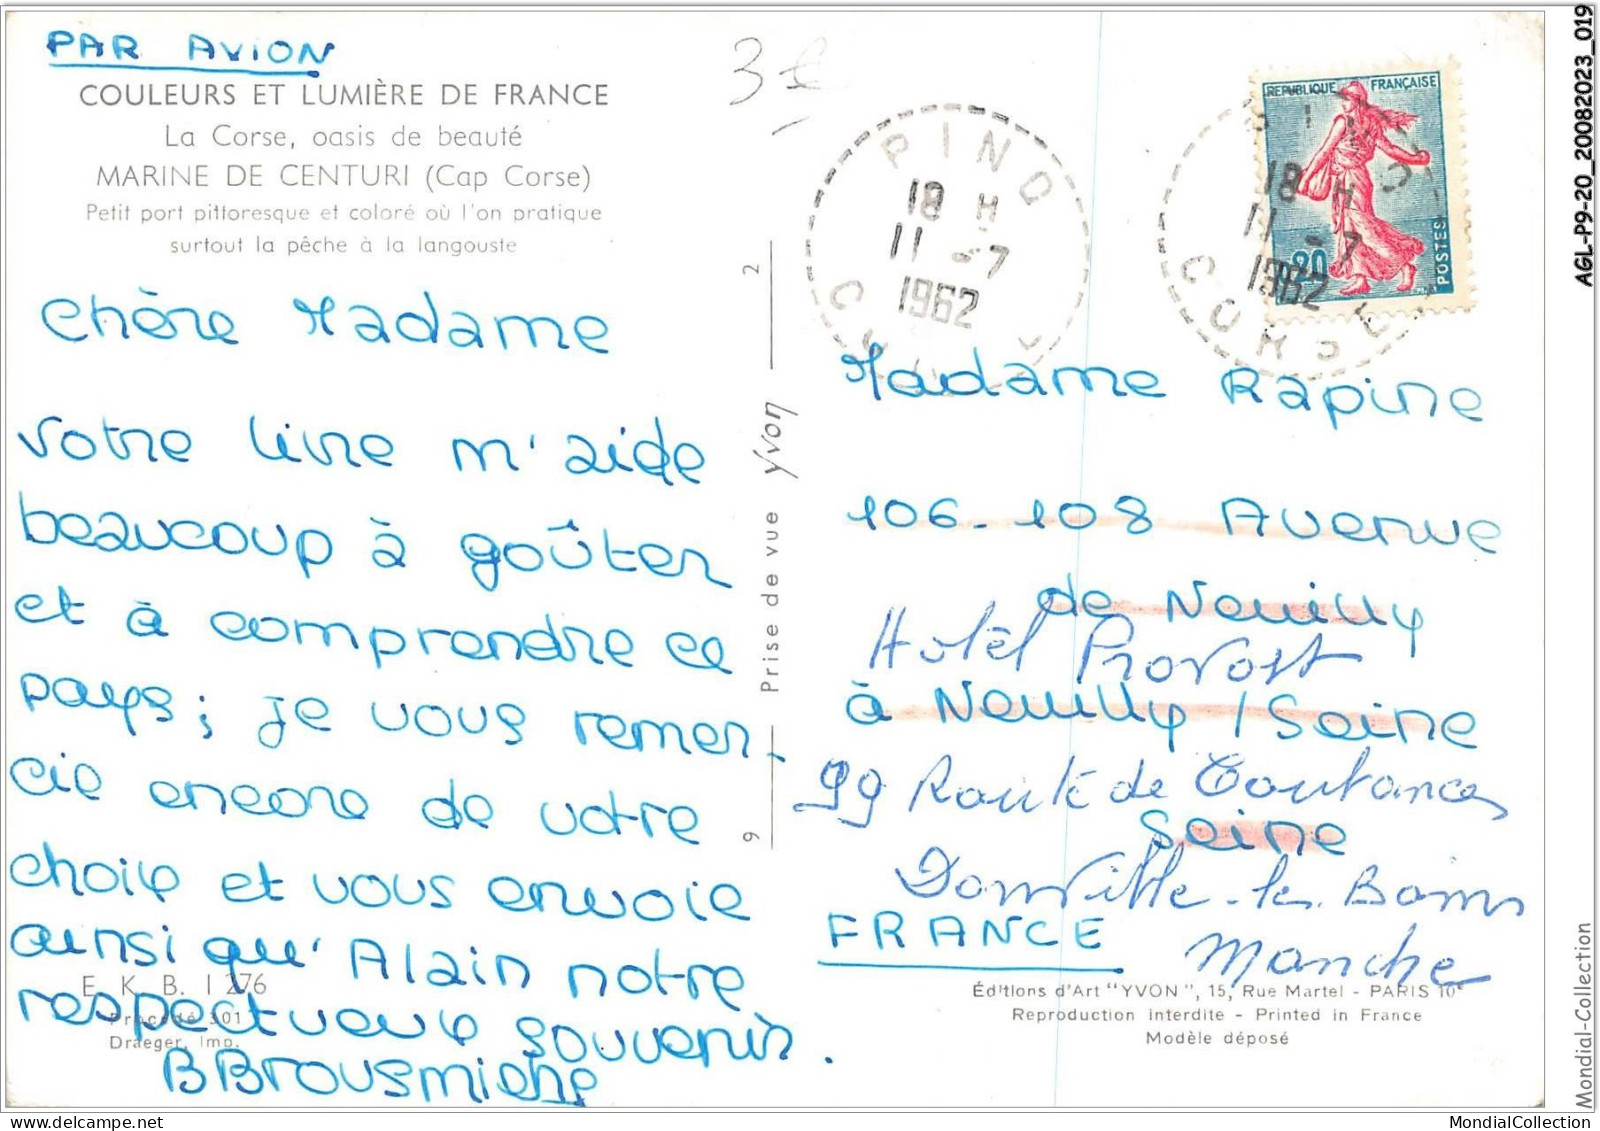 PAR AVION
COULEURS ET LUMIÈRE DE FRANCE
La Corse, oasis de beauté
MARINE DE CENTURI (Cap Corse)
Petit port pittoresque et coloré où l'on pratique
surtout la pêche à la langouste
chère Madame
votre livre m'aide
beaucoup à goûter
et à comprendre ce
pays; je vous remer-
cie encore de votre
choix et vous envoie
ainsi qu'Alain notre
respectueux souvenir.
E. K. B. 1 276
Procédé 301
Draeger, Imp.
9 Prise de vue Yvon 2
PINO
18 H
11 -7
1962
REPUBLIQUE FRANÇAISE
POSTES
18 H
11 -7
1962
CORSE
Madame Rapine
106-108 Avenue
de Neuilly
Hotel Provost
à Neuilly / Seine
99 Route de Coutances
Seine
Donville-les-Bains
Manche
FRANCE
Editions d'Art "YVON", 15, Rue Martel - PARIS 10e
Reproduction interdite - Printed in France
Modèle déposé
AGL-P9-20_20082023_019
Mondial-Collection
MondialCollection